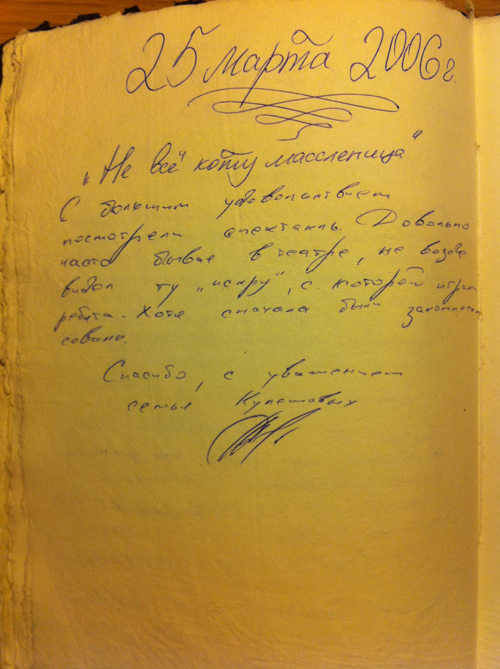 25 марта 2006г.
„Не всё коту массленица"
С большим удовольствием
посмотрели спектакль. Довольно
часто бывая в театре, не везде
видел ту „искру", с которой играли
ребята. Хотя сначала были
сованы.
Спасибо, с уважением
семья Кулешовых